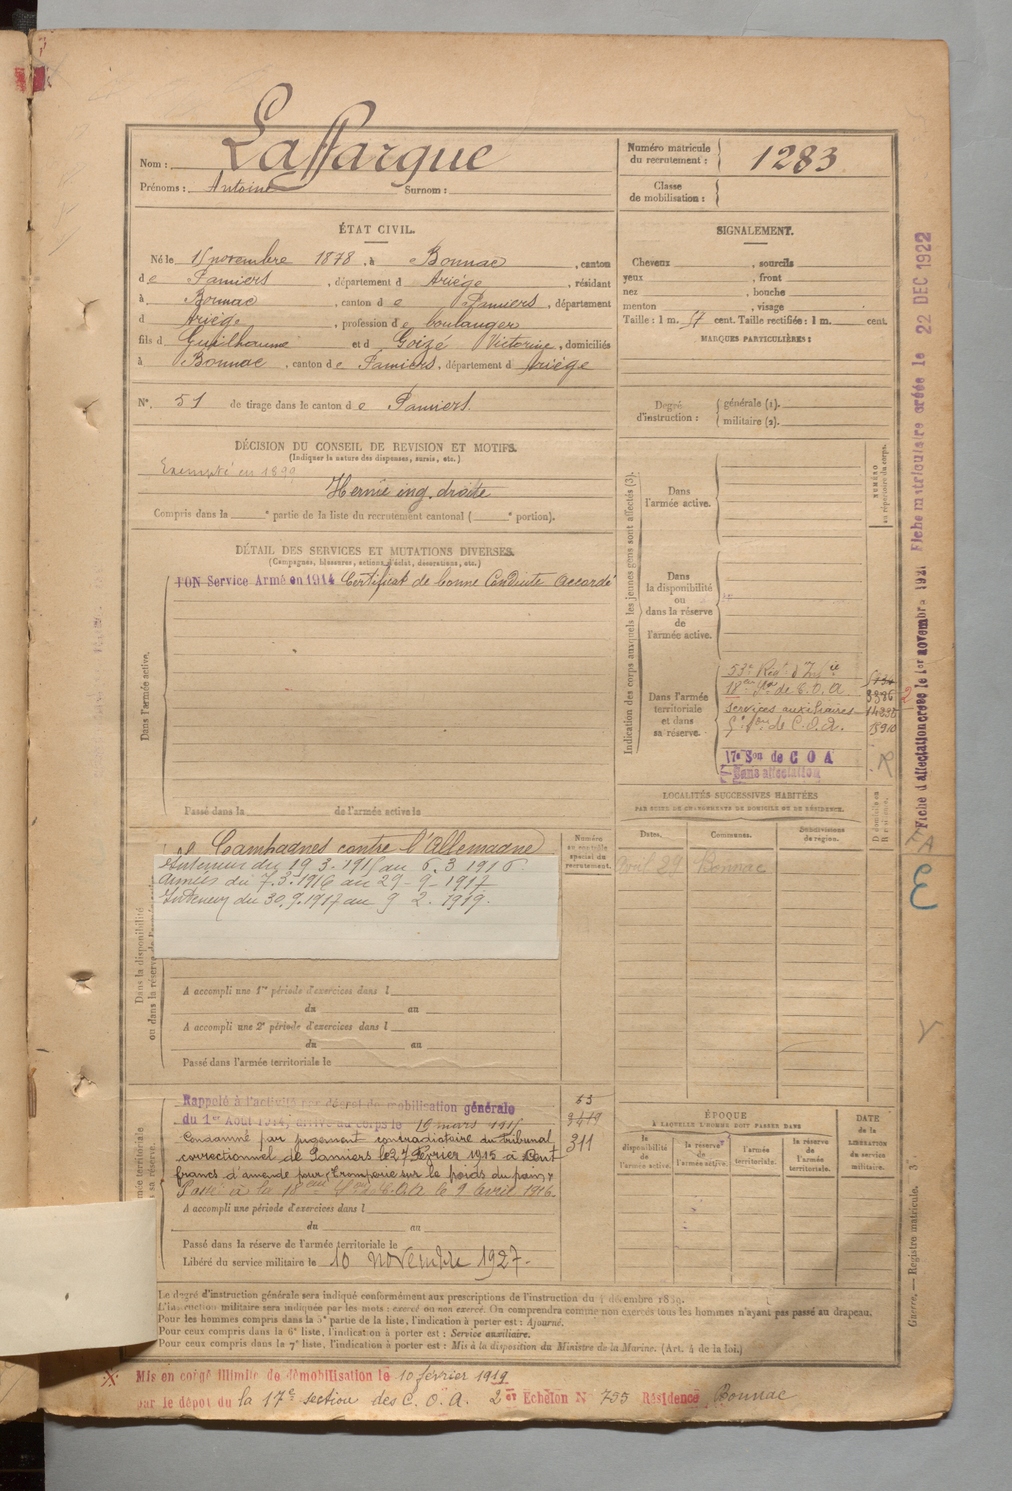 Nom : Laffargue
Prénoms : Antoine Surnom :
Numéro matricule du recrutement : 1283
Classe de mobilisation :
ÉTAT CIVIL.
Né le 15 novembre 1878, à Bonnac, canton
de Pamiers, département d Ariège, résidant
à Bonnac, canton de Pamiers, département
d Ariège, profession de boulanger
fils d Guilhaume et d Goizé Victorine, domiciliés
à Bonnac, canton de Pamiers, département d Ariège
N° 51 de tirage dans le canton de Pamiers.
SIGNALEMENT.
Cheveux , sourcils
yeux , front
nez , bouche
menton , visage
Taille : 1 m. 57 cent. Taille rectifiée : 1 m. cent.
MARQUES PARTICULIÈRES :
Degré d'instruction : générale (1).
militaire (2).
DÉCISION DU CONSEIL DE REVISION ET MOTIFS.
(Indiquer la nature des dispenses, sursis, etc.)
Exempté en 1899
Hernie ing. droite
Compris dans la e partie de la liste du recrutement cantonal ( e portion).
DÉTAIL DES SERVICES ET MUTATIONS DIVERSES.
(Campagnes, blessures, actions d'éclat, décorations, etc.)
BON Service Armé en 1914 Certificat de bonne Conduite accordé
Dans l'armée active.
Passé dans la de l'armée active le
Indication des corps auxquels les jeunes gens sont affectés (3).
NUMÉRO au répertoire du corps.
Dans l'armée active.
Dans la disponibilité ou dans la réserve de l'armée active.
Dans l'armée territoriale et dans sa réserve.
53e Rég. d'Infie
18eme Son de C.O.A.
services auxiliaires
5e Son de C.O.A.
17e Son de C O A
Sans affectation
R
LOCALITÉS SUCCESSIVES HABITÉES
PAR SUITE DE CHANGEMENTS DE DOMICILE OU DE RÉSIDENCE.
Dates. Communes. Subdivisions de région. D domicile ou R résidence.
Avril 29 Bonnac
Campagnes contre l'Allemagne
Intérieur du 19.3.1915 au 6.3 1916
Armées du 7.3.1916 au 29-9-1917
Intérieur du 30.9.1917 au 9 2. 1919.
Numéro au contrôle spécial du recrutement.
Dans la disponibilité ou dans la réserve de l'armée active.
A accompli une 1re période d'exercices dans l
du au
A accompli une 2e période d'exercices dans l
du au
Passé dans l'armée territoriale le
Rappelé à l'activité par décret de mobilisation générale
du 1er Août 1914, arrivé au corps le 19 mars 1915
Condamné par jugement contradictoire du tribunal
correctionnel de Pamiers le 27 Février 1915 à Cent
francs d'amende pour "tromperie sur le poids du pain"
Passé à la 18eme Son de C.O.A le 9 avril 1916.
311
A accompli une période d'exercices dans l
du au
Passé dans la réserve de l'armée territoriale le
Libéré du service militaire le 10 novembre 1927.
ÉPOQUE
À LAQUELLE L'HOMME DOIT PASSER DANS
la disponibilité de l'armée active. la réserve de l'armée active. l'armée territoriale. la réserve de l'armée territoriale.
DATE de la LIBÉRATION du service militaire.
Le degré d'instruction générale sera indiqué conformément aux prescriptions de l'instruction du 4 décembre 1889.
L'instruction militaire sera indiquée par les mots : exercé ou non exercé. On comprendra comme non exercés tous les hommes n'ayant pas passé au drapeau.
Pour les hommes compris dans la 5e partie de la liste, l'indication à porter est : Ajourné.
Pour ceux compris dans la 6e liste, l'indication à porter est : Service auxiliaire.
Pour ceux compris dans la 7e liste, l'indication à porter est : Mis à la disposition du Ministre de la Marine. (Art. 4 de la loi.)
Mis en congé illimité de démobilisation le 10 février 1919
par le dépot du la 17e section des C.O.A. 2e Echelon N° 755 Résidence Bonnac
Fiche d'affectation créée le 1er novembre 1921 Fiche matriculaire créée le 22 DEC 1922
Guerre. — Registre matricule. 3e.